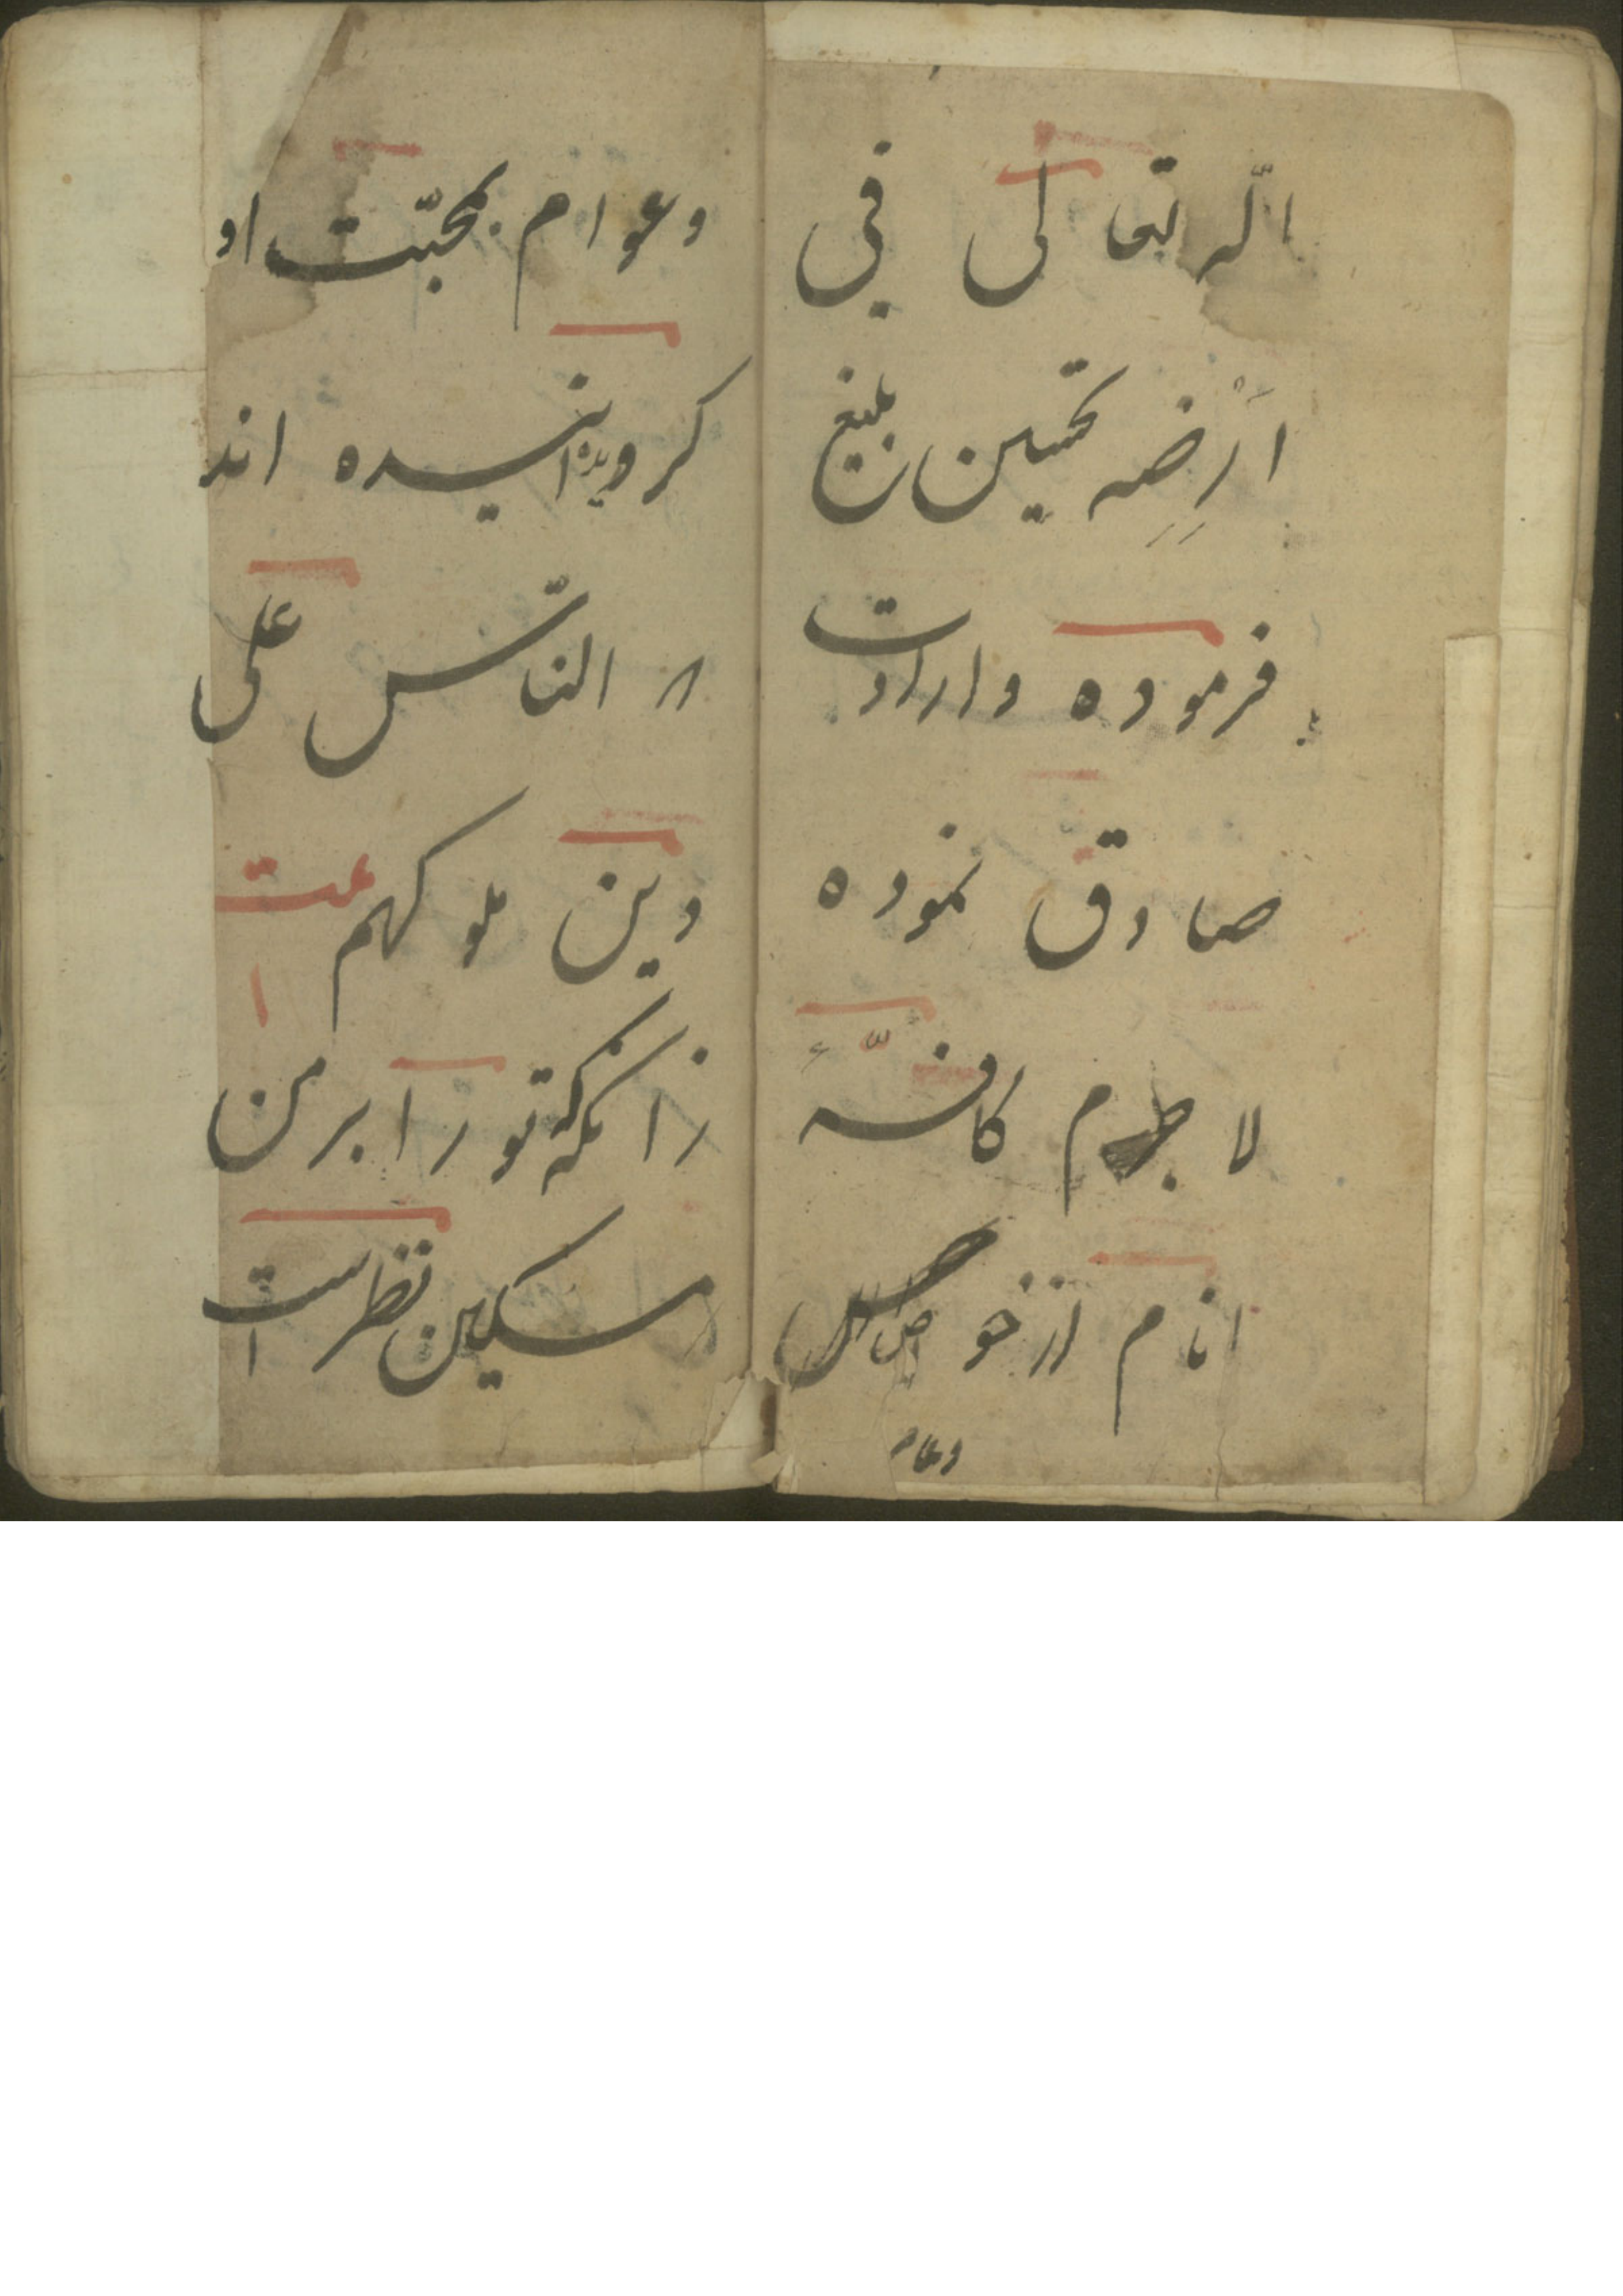 الله تعالی فی
اَرْضِهِ تحسین بلیغ
فرموده و ارادت
صادق نموده
لا جرم کافّهٔ
انام از خواص
وعام
و عوام بمحبّت او
کرو انیده اند
الناس علی
دین ملوکهم
زانکه تورا بر من
مسکین نظر است